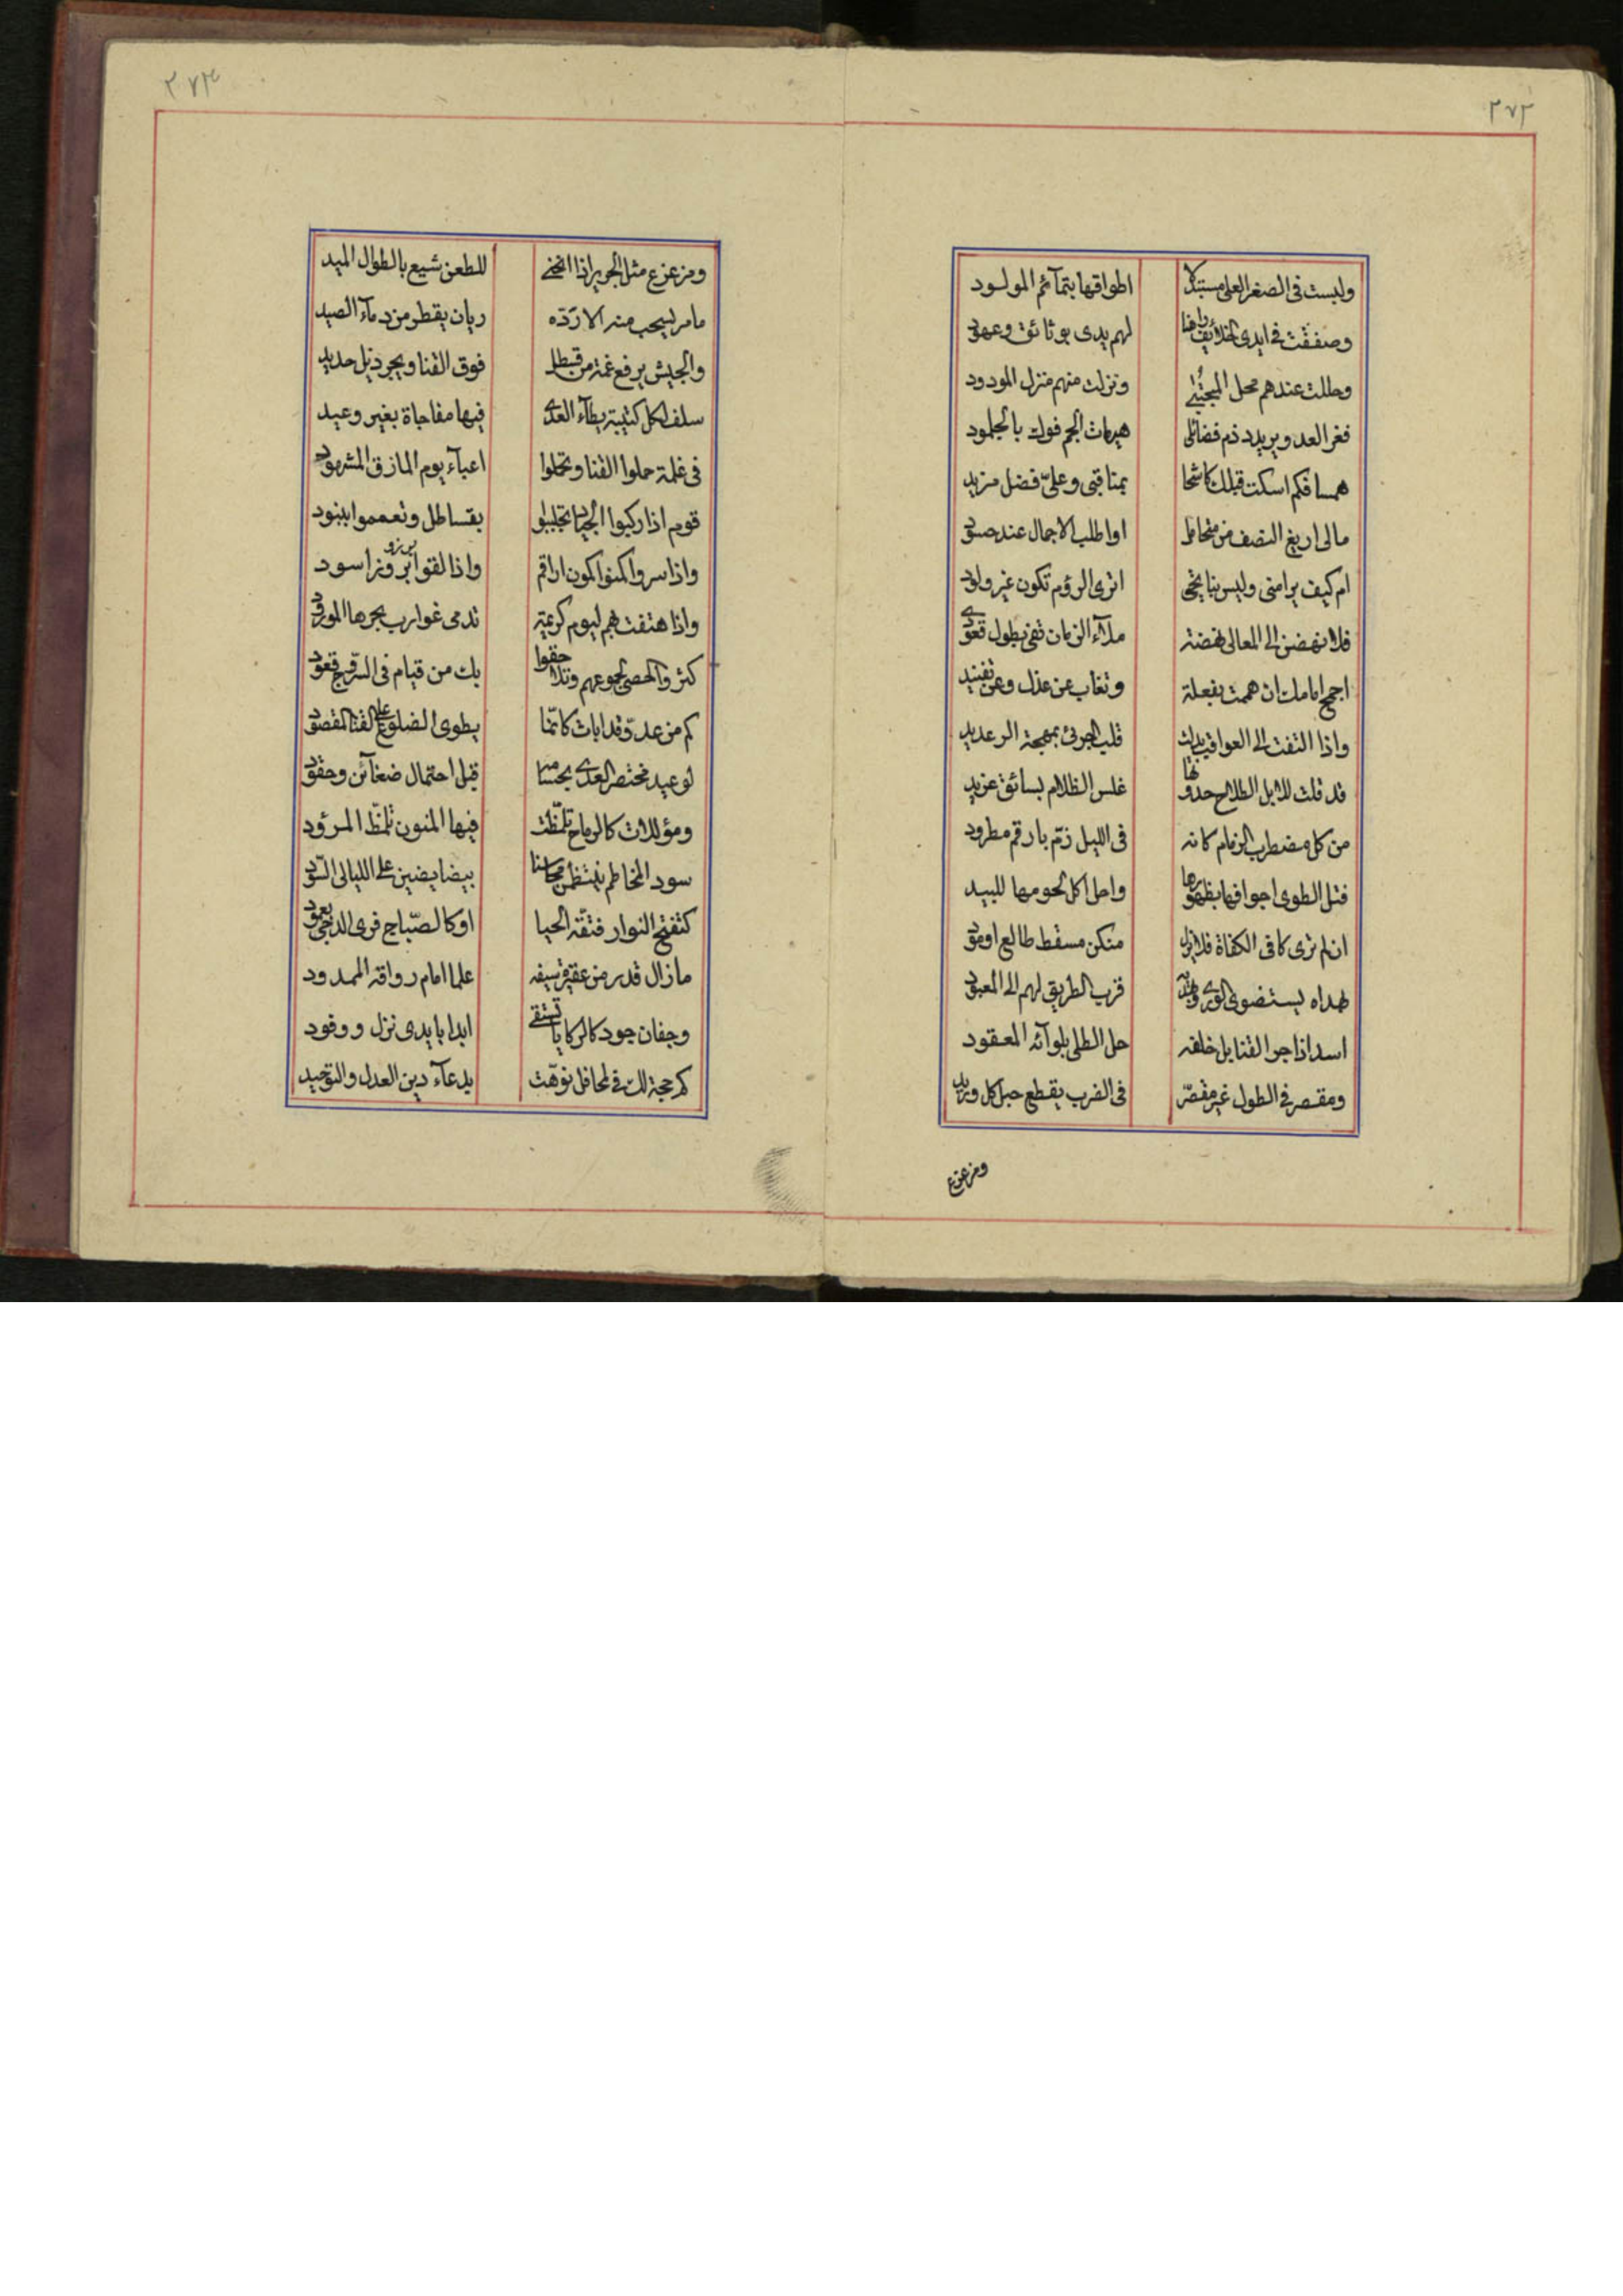 ٢٧٢
ولبست في الصغر العلى مستبدلا اطواقها بتمآئم المولود
وصفقت في ايدى الخلائف راهنا لهم يدى بوثائق وعهود
وحللت عندهم محل المجتبى ونزلت منهم منزل المودود
فغر العدو يريد ذم فضائلى هيهات الجم فوك بالجلمود
همسا فكم اسكت قبلك كاشحا بمناقبى وعلىّ فضل مزيد
مالى اريغ النصف من متحامل اواطلب الاجمال عند حسود
ام كيف يرامنى وليس بنا يخى انرى الرؤم تكون غير ولود
فلانهضن الى المعالى نهضة ملآء الزمان تفى بطول قعودى
اجمح امامك ان هممت بفعلة وتغاب عن عذل وعن تفنيد
واذا التفت الى العواقب بدلت قلب الجرئ بمهجة الرعديد
قد قلت للابل الطلاح حدوتها غلس الظلام بسائق غريد
من كل مضطرب الزمام كانه فى الليل زمّ بارقم مطرود
فتل الطوى اجوافها بظهورها واحل اكل لحومها للبيد
ان لم ترى كافى الكفاة فلا يزل منكن مسقط طالع اومود
بهداه يستضوى الورى وبهديه قرب الطريق لهم الى المعبود
اسد اذا جر القنابل خلفه حل الطلى بلوآئه المعقود
ومقصر فى الطول غير مقصّر فى الضرب يقطع حبل كل وريد
ومزعزع
٢٧٣
ومزعزع مثل الجرير اذا انحنى للطعن شيع بالطوال الميد
مامر يسحب منه الا ردّه ريان يقطر من دمآء الصيد
والجيش يرفع غمة من قسطل فوق القنا ويجر ذيل حديد
سلف لكل كتيبة يطآء العدى فيها مفاجاة بغير وعيد
فى غلمة حملوا القنا وتحملوا اعبآء يوم المازق المشهود
قوم اذا ركبوا الجياد تجلببوا بقساطل وتعمموا ببنود
واذا سروا كمنوا كمون اراقم واذا لقوا برزو بروز اسود
واذا هتفت بهم ليوم كريهة تدمى غوارب بحرها المورود
كثروا الحصى بجموعهم وتلاحقوا بك من قيام فى السروج قعود
كم من عدوّ قد ابات كانّما يطوى الضلوع على القنا المقصود
لوعيد مختصر العدى بحسامه قبل احتمال ضغآئن وحقود
ومؤللات كالرماح تلمّظت فيها المنون تلمّظ المرؤد
سود المخاطم ينتظمن محاسنا بيضا يضئن على الليالى السّود
كتفتح النوار فتقه الحيا اوكالصّباح فرى الدجى بعمود
مازال قدر من عقيرة سيفه علما امام رواقه الممدود
وجفان جود كالركايا تستقى ابدا بايدى نزل ووفود
كم حجة لك فى المحافل نوّهت بدعآء دين العدل والتوحيد